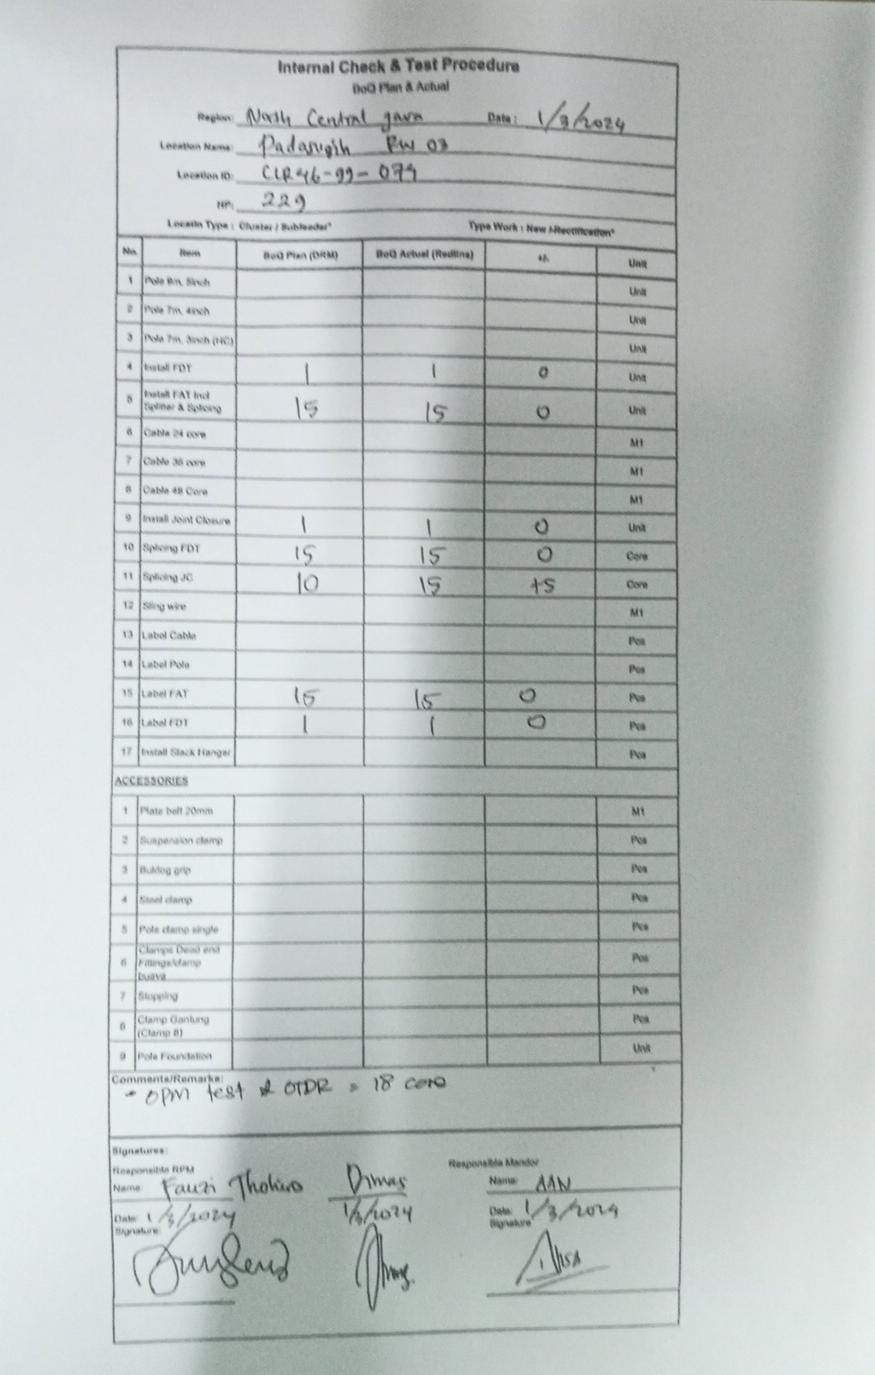 Internal Check & Test Procedure
BoQ Plan & Actual
Region: North Central java Date: 1/3/2024
Location Name: RW 03
Location ID:
HP: 229
Locatin Type : Cluster / Subfeeder* Type Work : New /-Rectification*
No. Item BoQ Plan (DRM) BoQ Actual (Redline) +/- Unit
1 Pole 9m, 5inch Unit
2 Pole 7m, 4inch Unit
3 Pole 7m, 3inch (HC) Unit
4 Install FDT 1 1 0 Unit
5 Install FAT Incl Splitter & Splicing 15 15 0 Unit
6 Cable 24 core M1
7 Cable 36 core M1
8 Cable 48 Core M1
9 Install Joint Closure 1 1 0 Unit
10 Splicing FDT 15 15 0 Core
11 Splicing JC 10 15 +5 Core
12 Sling wire M1
13 Label Cable Pcs
14 Label Pole Pcs
15 Label FAT 15 15 0 Pcs
16 Label FDT 1 1 0 Pcs
17 Install Slack Hanger Pcs
ACCESSORIES
1 Plate belt 20mm M1
2 Suspension clamp Pcs
3 Buldog grip Pcs
4 Steel clamp Pcs
5 Pole clamp single Pcs
6 Clamps Dead end Fittings/clamp buaya Pcs
7 Stopping Pcs
8 Clamp Gantung (Clamp B) Pcs
9 Pole Foundation Unit
Comments/Remarks:
- OPM test & OTDR = 18 core
Signatures:
Responsible RPM Responsible Mandor
Name: Fauzi Dimas Name: AAN
Date: 1/3/2024 1/3/2024 Date: 1/3/2024
Signature: Signature